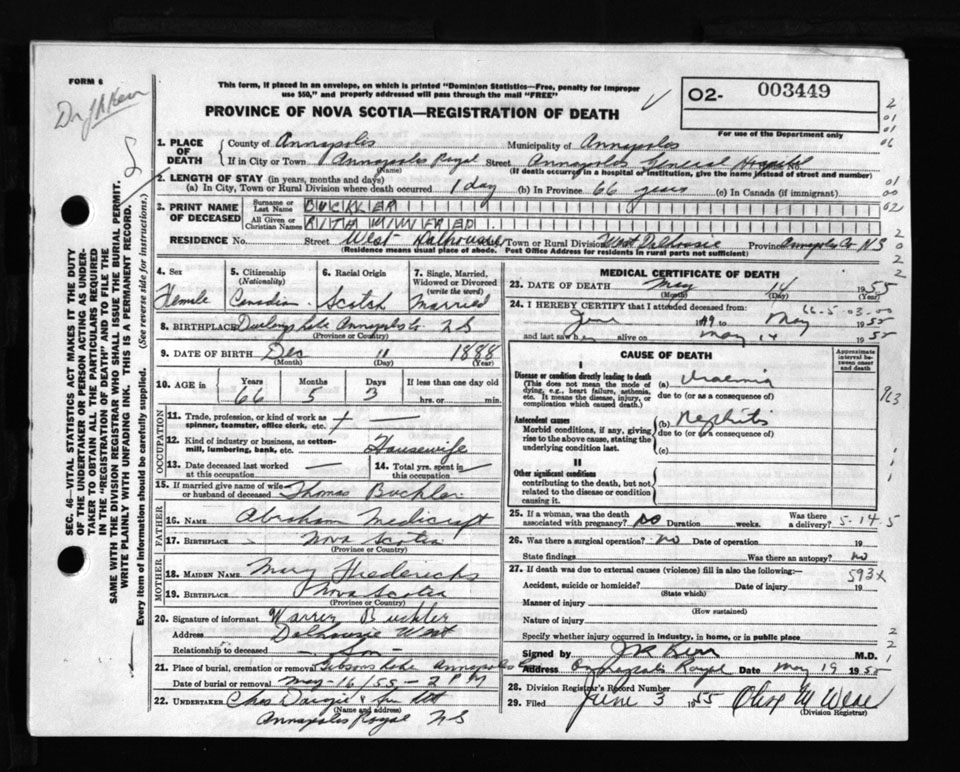 FORM 6
Dr J R Kerr
This form, if placed in an envelope, on which is printed "Dominion Statistics—Free, penalty for improper
use $50," and properly addressed will pass through the mail "FREE"
PROVINCE OF NOVA SCOTIA—REGISTRATION OF DEATH
O2- 003449
For use of the Department only
1. PLACE OF DEATH
County of Annapolis Municipality of Annapolis
If in City or Town Annapolis Royal Street Annapolis General Hospital
(Name) (If death occurred in a hospital or institution, give the name instead of street and number)
2. LENGTH OF STAY (in years, months and days)
(a) In City, Town or Rural Division where death occurred 1 day (b) In Province 66 years (c) In Canada (if immigrant)
3. PRINT NAME OF DECEASED
Surname or Last Name BUCKLER
All Given or Christian Names RITA WINIFRED
RESIDENCE No. Street West Dalhousie Town or Rural Division West Dalhousie Province Annapolis Co NS
(Residence means usual place of abode. Post Office Address for residents in rural parts not sufficient)
4. Sex
Female
5. Citizenship
(Nationality)
Canadian
6. Racial Origin
Scotch
7. Single, Married, Widowed or Divorced
(write the word)
Married
8. BIRTHPLACE Lake Annapolis Co. NS
(Province or Country)
9. DATE OF BIRTH Dec 11 1888
(Month) (Day) (Year)
10. AGE in Years Months Days If less than one day old
66 5 3 hrs. or min.
OCCUPATION
11. Trade, profession, or kind of work as
spinner, teamster, office clerk, etc.
12. Kind of industry or business, as cotton-
mill, lumbering, bank, etc. Housewife
13. Date deceased last worked
at this occupation —
14. Total yrs. spent in
this occupation —
15. If married give name of wife
or husband of deceased Thomas Buckler
FATHER
16. NAME Abraham Medicraft
17. BIRTHPLACE Nova Scotia
(Province or Country)
MOTHER
18. MAIDEN NAME May
19. BIRTHPLACE Nova Scotia
(Province or Country)
20. Signature of informant Buckler
Address Dalhousie West
Relationship to deceased Son
21. Place of burial, cremation or removal Gibsons Lake Annapolis
Date of burial or removal May-16/55-2 PM
22. UNDERTAKER Chas Dargie & Son
(Name and address)
Annapolis Royal NS
MEDICAL CERTIFICATE OF DEATH
23. DATE OF DEATH May 14 1955
(Month) (Day) (Year)
24. I HEREBY CERTIFY that I attended deceased from: 66-5-03-00
19 to May 1955
and last saw her alive on May 14 1955
CAUSE OF DEATH
Approximate interval between onset and death
I
Disease or condition directly leading to death
(This does not mean the mode of
dying, e.g., heart failure, asthenia,
etc. It means the disease, injury, or
complication which caused death.)
(a) Uraemia
due to (or as a consequence of)
Antecedent causes
Morbid conditions, if any, giving
rise to the above cause, stating the
underlying condition last.
(b) Nephritis
due to (or as a consequence of)
(c)
II
Other significant conditions
contributing to the death, but not
related to the disease or condition
causing it.
25. If a woman, was the death
associated with pregnancy? no Duration weeks. Was there
a delivery? 5-14-5
26. Was there a surgical operation? no Date of operation 19
State findings Was there an autopsy? no
27. If death was due to external causes (violence) fill in also the following:—
593x
Accident, suicide or homicide? Date of injury 19
(State which)
Manner of injury
(How sustained)
Nature of injury
Specify whether injury occurred in industry, in home, or in public place
Signed by J R Kerr M.D.
Address Annapolis Royal Date May 19 1955
28. Division Registrar's Record Number
29. Filed June 3 1955
(Division Registrar)
SEC. 46—VITAL STATISTICS ACT MAKES IT THE DUTY
OF THE UNDERTAKER OR PERSON ACTING AS UNDER-
TAKER TO OBTAIN ALL THE PARTICULARS REQUIRED
IN THE "REGISTRATION OF DEATH" AND TO FILE THE
SAME WITH THE DIVISION REGISTRAR WHO SHALL ISSUE THE BURIAL PERMIT.
WRITE PLAINLY WITH UNFADING INK. THIS IS A PERMANENT RECORD.
Every item of information should be carefully supplied. (See reverse side for instructions.)